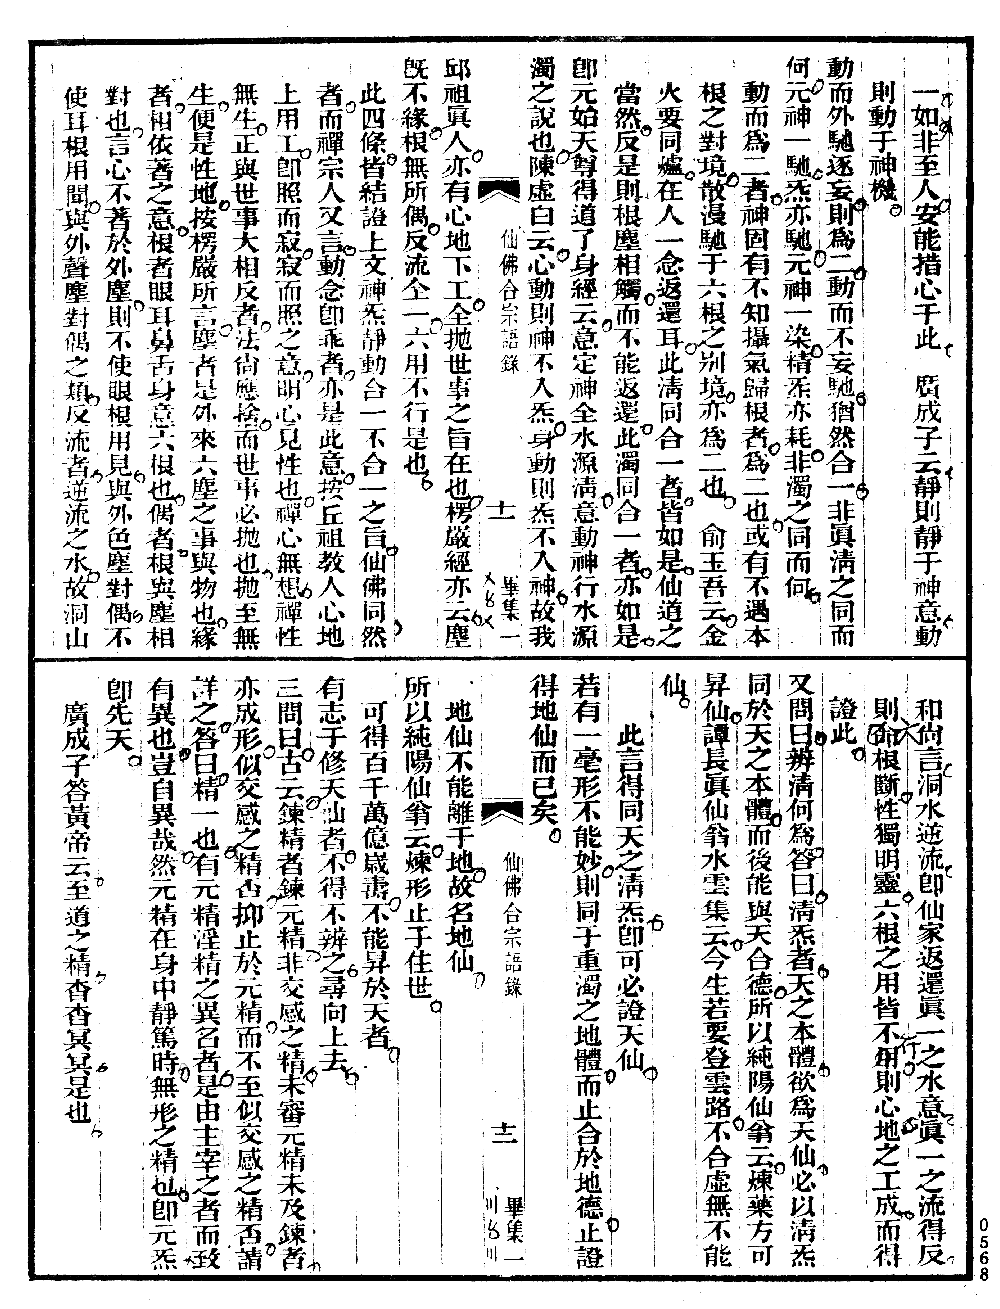 一如非至人安能措心于此　廣成子云靜則靜于神意動
則動于神機
動而外馳逐妄則爲二動而不妄馳猶然合一非眞淸之同而
何元神一馳炁亦馳元神一染精炁亦耗非濁之同而何
動而爲二者神固有不知攝氣歸根者爲二也或有不遇本
根之對境散漫馳于六根之别境亦爲二也　俞玉吾云金
火要同爐在人一念返還耳此淸同合一者皆如是仙道之
當然反是則根塵相觸而不能返還此濁同合一者亦如是
卽元始天尊得道了身經云意定神全水源淸意動神行水源
濁之說也陳虛白云心動則神不入炁身動則炁不入神故我
仙佛合宗語錄
十一
畢集一
邱祖眞人亦有心地下工全拋世事之旨在也楞嚴經亦云塵
旣不緣根無所偶反流全一六用不行是也
此四條皆結證上文神炁靜動合一不合一之旨仙佛同然
者而禪宗人又言動念卽乖者亦是此意按丘祖敎人心地
上用工卽照而寂寂而照之意明心見性也禪心無想禪性
無生正與世事大相反者法尙應捨而世事必拋也拋至無
生便是性地按楞嚴所言塵者是外來六塵之事與物也緣
者相依著之意根者眼耳鼻舌身意六根也偶者根與塵相
對也言心不著於外塵則不使眼根用見與外色塵對偶不
使耳根用聞與外聲塵對偶之類反流者逆流之水故洞山
和尙言洞水逆流卽仙家返還眞一之水意眞一之流得反
則命根斷性獨明靈六根之用皆不行則心地之工成而得
證此
又問曰辨淸何爲答曰淸炁者天之本體欲爲天仙必以淸炁
同於天之本體而後能與天合德所以純陽仙翁云煉藥方可
昇仙譚長眞仙翁水雲集云今生若要登雲路不合虛無不能
仙
此言得同天之淸炁卽可必證天仙
若有一毫形不能妙則同于重濁之地體而止合於地德止證
得地仙而已矣
仙佛合宗語錄
十二
畢集一
地仙不能離于地故名地仙
所以純陽仙翁云煉形止于住世
可得百千萬億歲壽不能昇於天者
有志于修天仙者不得不辨之尋向上去
三問曰古云鍊精者鍊元精非交感之精未審元精未及鍊者
亦成形似交感之精否抑止於元精而不至似交感之精否請
詳之答曰精一也有元精淫精之異名者是由主宰之者而致
有異也豈自異哉然元精在身中靜篤時無形之精也卽元炁
卽先天
廣成子答黃帝云至道之精杳杳冥冥是也
0568